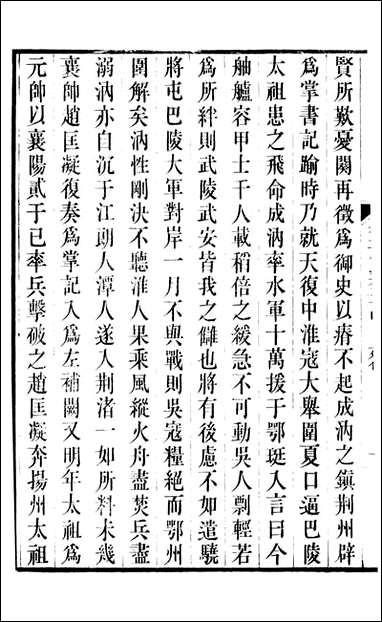 賢所歎憂闋再徵爲御史以瘠不起成汭之鎭荆州辟
爲掌書記踰時乃就天復中淮寇大舉圍夏口逼巴陵
太祖患之飛命成汭率水軍十萬援于鄂珽入言曰今
舳艫容甲士千人載稻倍之緩急不可動吳人剽輕若
爲所絆則武陵武安皆我之讎也將有後慮不如遣驍
將屯巴陵大軍對岸一月不與戰則吳寇糧絕而鄂州
圍解矣汭性剛決不聽淮人果乘風縱火舟盡焚兵盡
溺汭亦自沉于江朗人潭人遂入荆渚一如所料未幾
襄帥趙匡凝復奏爲掌記入爲左補闕又明年太祖爲
元帥以襄陽貳于已率兵擊破之趙匡凝奔揚州太祖